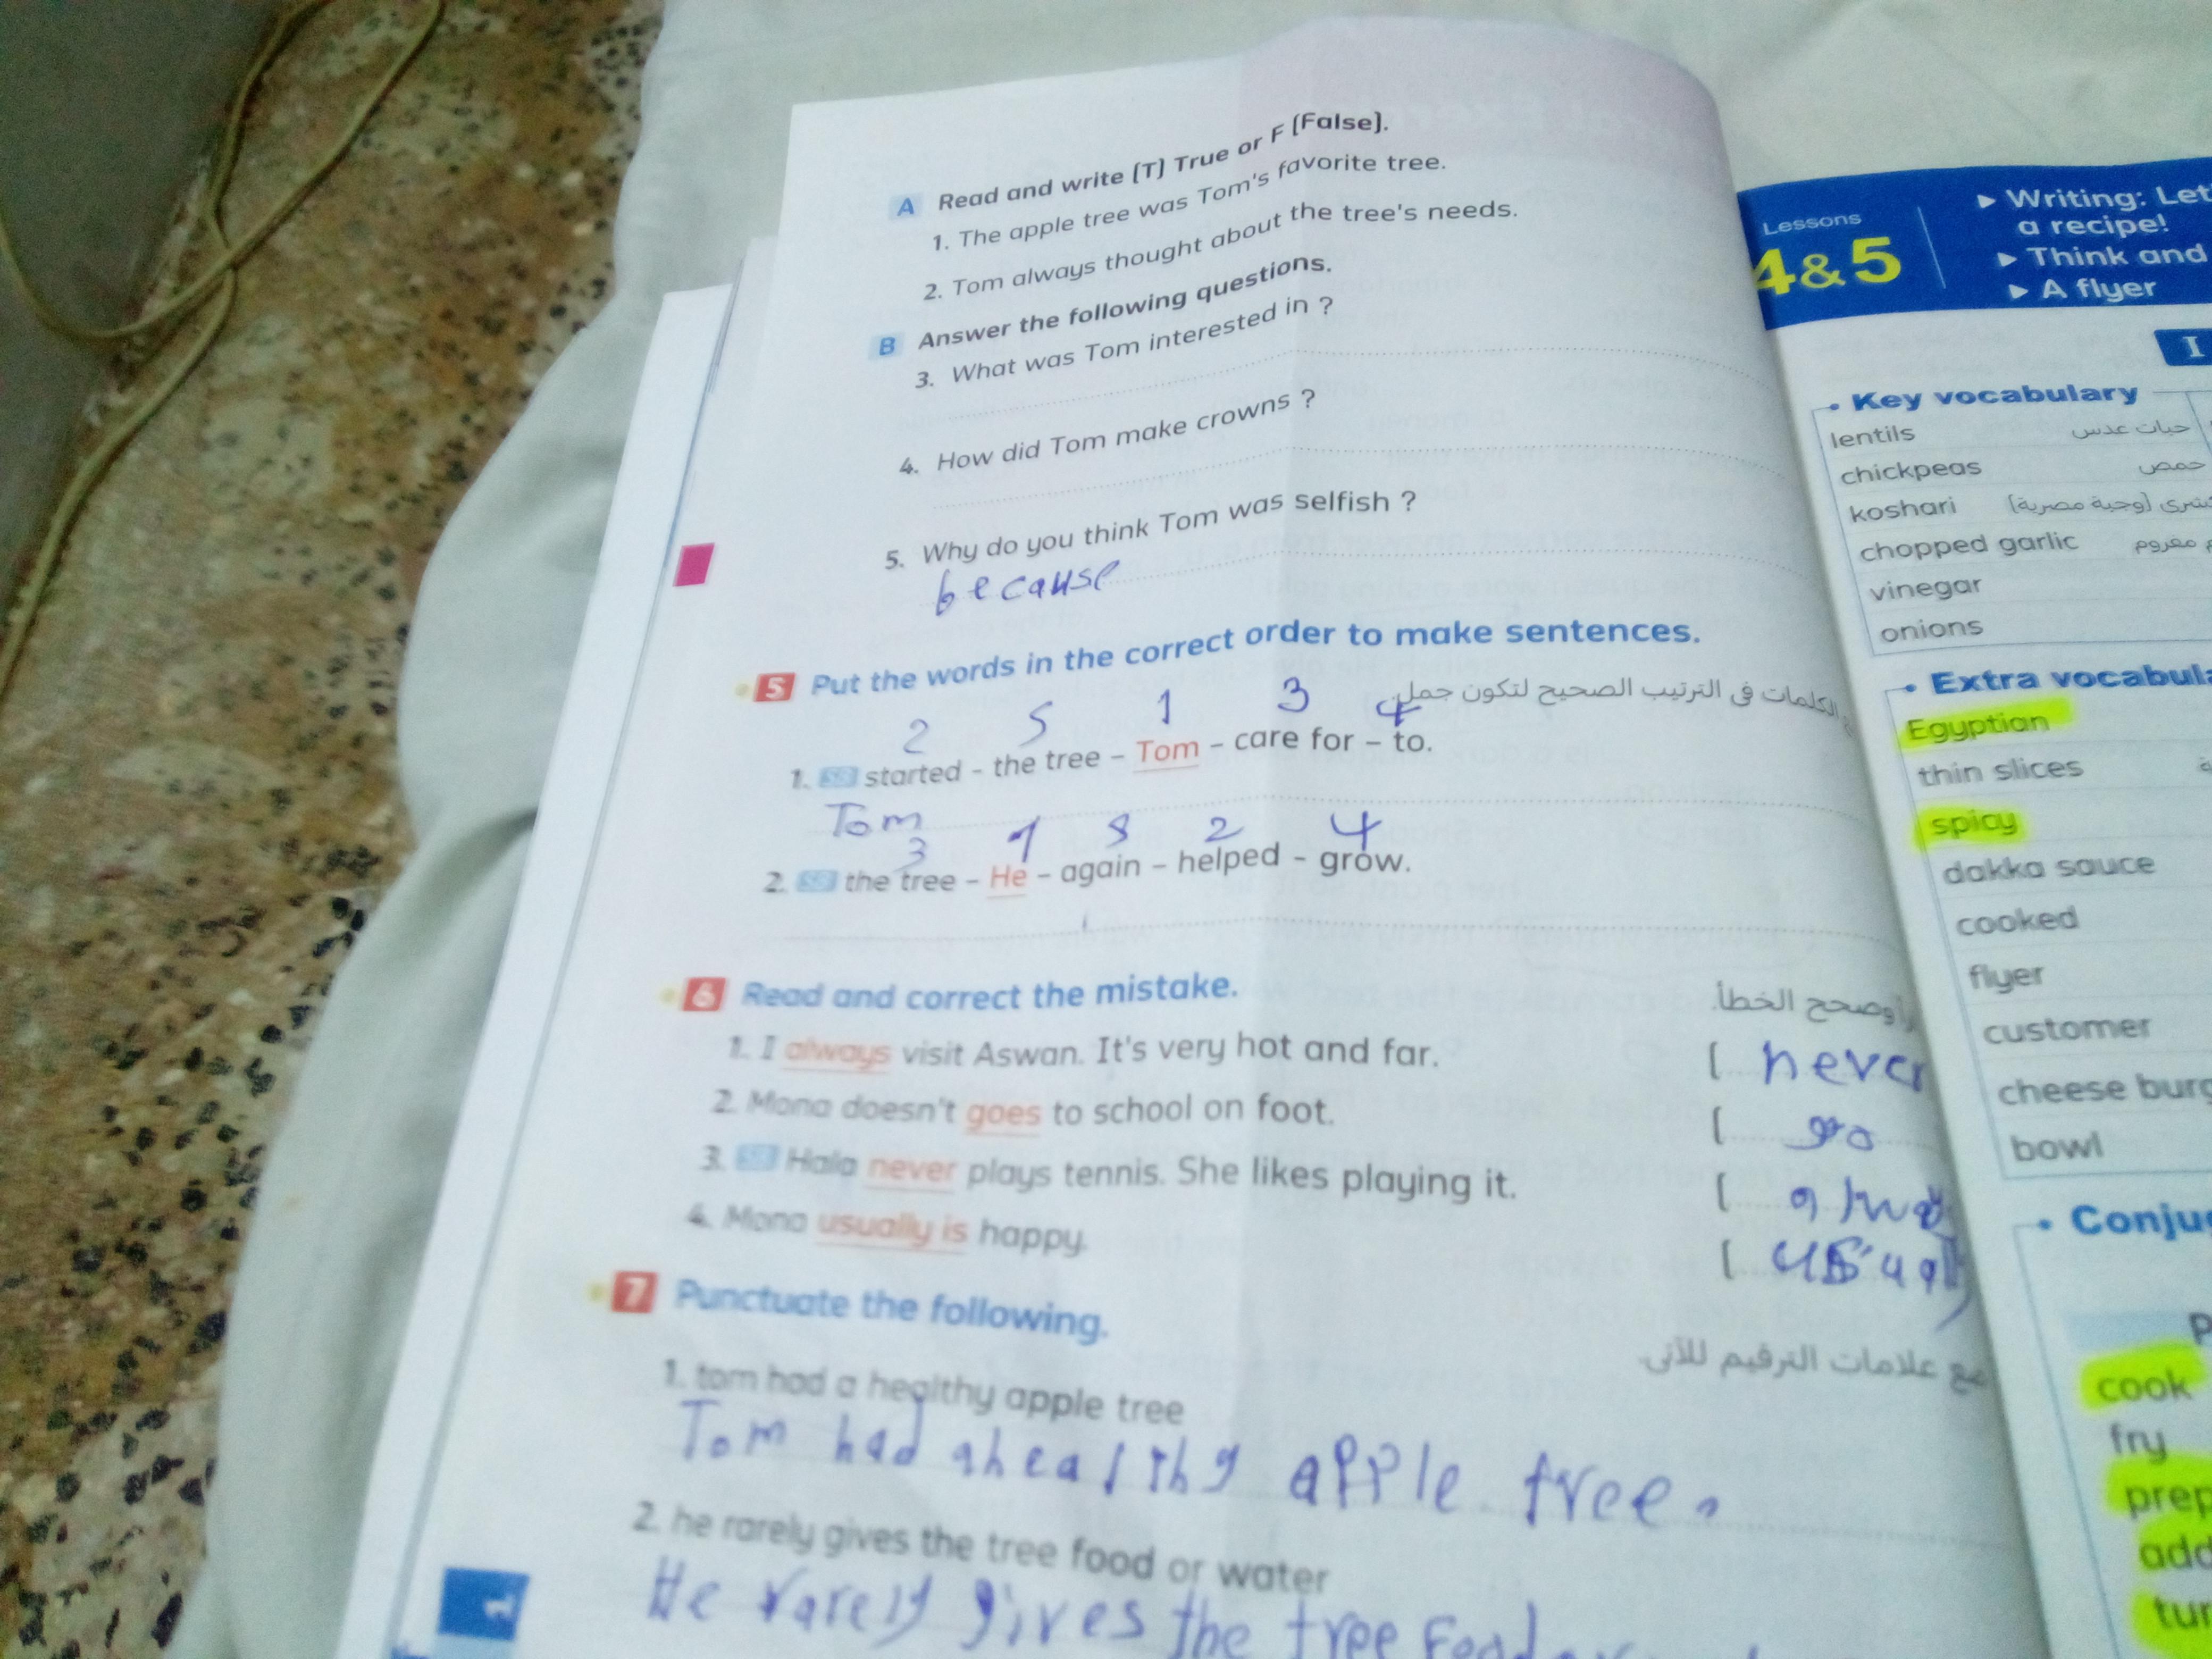 A Read and write (T) True or F (False).
1. The apple tree was Tom's favorite tree.
2. Tom always thought about the tree's needs.
B Answer the following questions.
3. What was Tom interested in ?
4. How did Tom make crowns ?
5. Why do you think Tom was selfish ?
because
5 Put the words in the correct order to make sentences.
الكلمات فى الترتيب الصحيح لتكون جمل.
2 5 1 3 4
1. started - the tree - Tom - care for - to.
Tom
3 1 2 4
2. the tree - He - again - helped - grow.
6 Read and correct the mistake.
وصحح الخطأ.
1. I always visit Aswan. It's very hot and far. [ never
2. Mona doesn't goes to school on foot. [ go
3. Hala never plays tennis. She likes playing it. [
4. Mona usually is happy. [
7 Punctuate the following.
علامات الترقيم للآتى.
1. tom had a healthy apple tree
Tom had a healthy apple tree.
2. he rarely gives the tree food or water
He rarely gives the tree Food
Lessons
4&5
▶ Writing: Let
a recipe!
▶ Think and
▶ A flyer
I
• Key vocabulary
lentils حبات عدس
chickpeas حمص
koshari (وجبة مصرية)
chopped garlic مفروم
vinegar
onions
• Extra vocabul
Egyptian
thin slices
spicy
dakka sauce
cooked
flyer
customer
cheese burg
bowl
• Conju
P
cook
fry
prep
add
tur